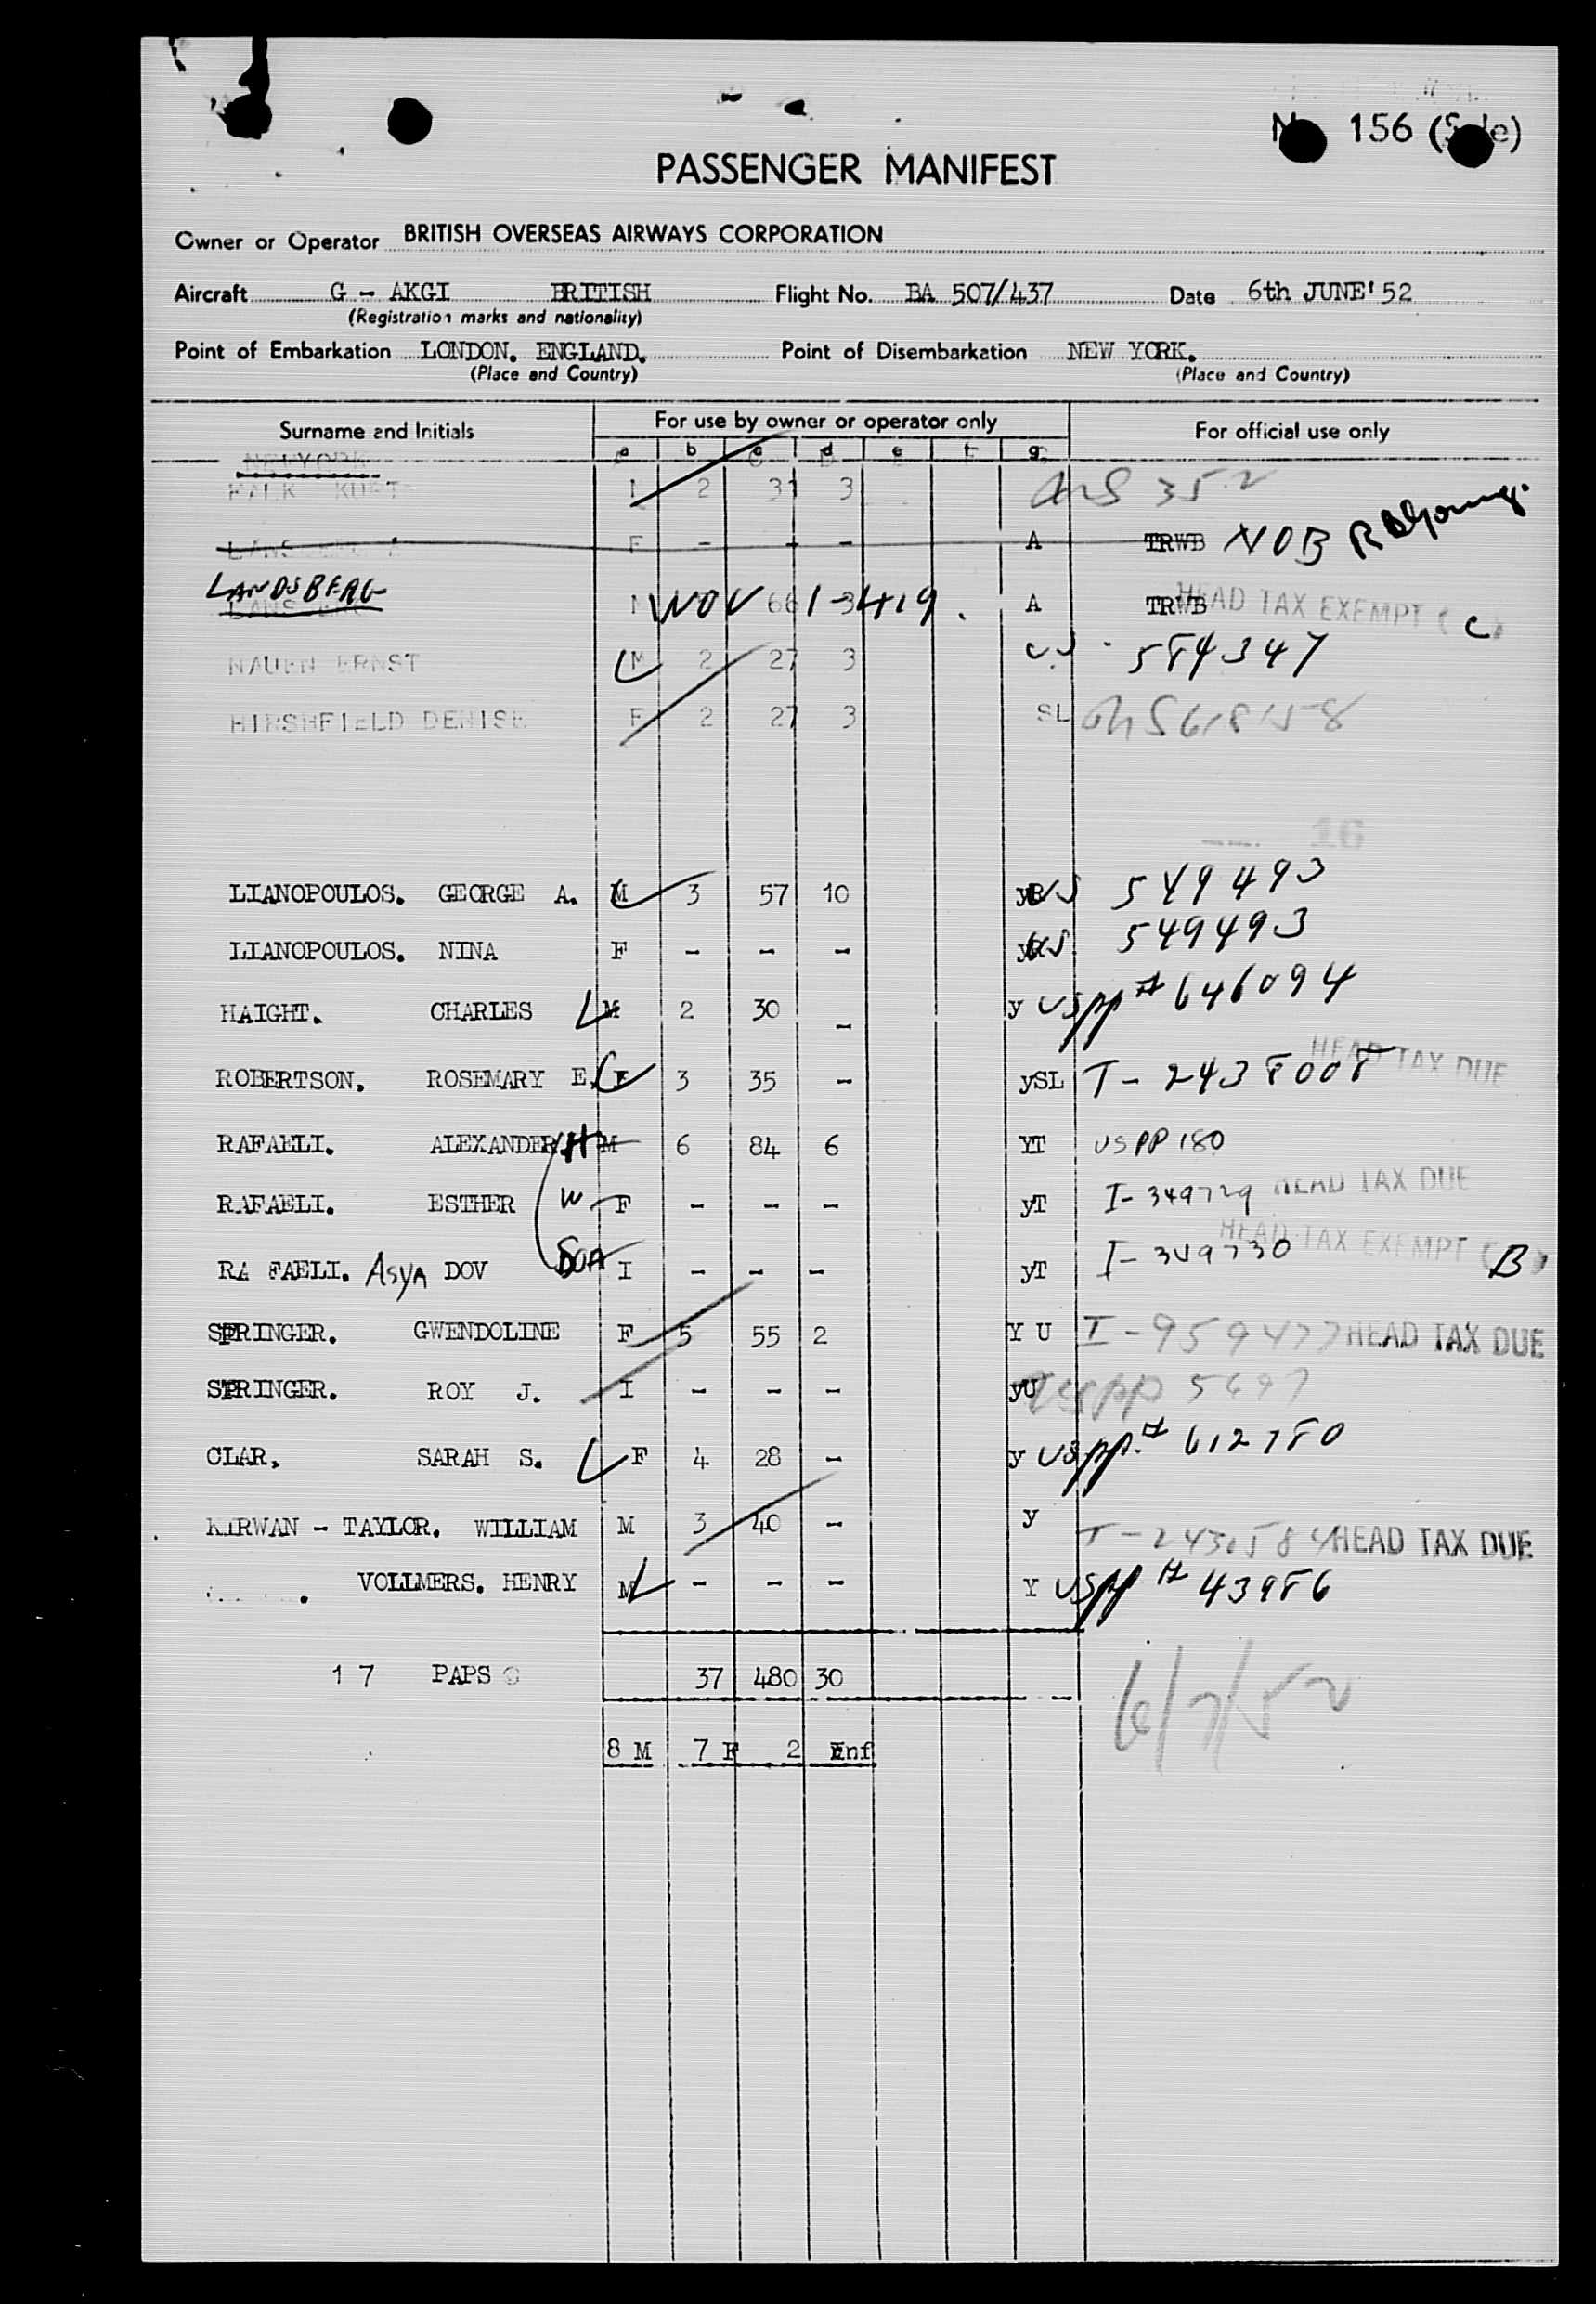 156
PASSENGER MANIFEST
Owner or Operator BRITISH OVERSEAS AIRWAYS CORPORATION
Aircraft G - AKGI BRITISH Flight No. BA 507/437 Date 6th JUNE'52
(Registration marks and nationality)
Point of Embarkation LONDON. ENGLAND. Point of Disembarkation NEW YORK.
(Place and Country) (Place and Country)
Surname and Initials For use by owner or operator only For official use only
a b c d e f g
NEW YORK
FALK KURT 2 31 3 352
F - - - A TRWB NOB
LANDSBERG
66 1-419. A TRWB HEAD TAX EXEMPT ( C )
NAUEN ERNST M 2 27 3 US 584347
HIRSHFIELD DENISE F 2 27 3 SL
16
LIANOPOULOS. GEORGE A. M 3 57 10 US 549493
LIANOPOULOS. NINA F - - - US 549493
HAIGHT. CHARLES M 2 30 - y US pp # 646094
ROBERTSON. ROSEMARY E. F 3 35 - ySL T-2438008 HEAD TAX DUE
RAFAELI. ALEXANDER. H M 6 84 6 YT US PP 180
RAFAELI. ESTHER W F - - - yT I-349729 HEAD TAX DUE
RAFAELI. Asya DOV I - - - yT I-349730 HEAD TAX EXEMPT ( B )
SPRINGER. GWENDOLINE F 5 55 2 Y U I-959477 HEAD TAX DUE
SPRINGER. ROY J. I - - - yU uspp 5697
CLAR, SARAH S. F 4 28 - y US pp.# 612780
KIRWAN - TAYLOR. WILLIAM M 3 40 - y HEAD TAX DUE
VOLLMERS. HENRY M - - - Y US pp # 43986
17 PAPS 37 480 30
6/7/52
8 M 7 F 2 Inf